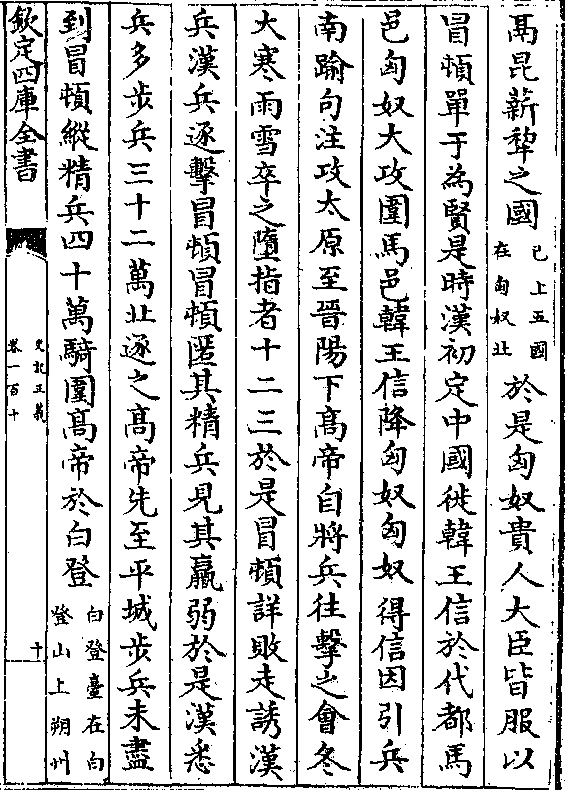 鬲昆薪犂之國已上五國在匈奴北於是匈奴貴人大臣皆服以
冒頓單于為賢是時漢初定中國徙韓王信於代都馬
邑匈奴大攻圍馬邑韓王信降匈奴匈奴得信因引兵
南踰句注攻太原至晉陽下髙帝自將兵往擊之會冬
大寒雨雪卒之墮指者十二三於是冒頓詳敗走誘漢
兵漢兵逐擊冒頓冒頓匿其精兵見其羸弱於是漢悉
兵多步兵三十二萬北逐之髙帝先至平城步兵未盡
到冒頓縱精兵四十萬騎圍髙帝於白登白登臺在白登山上朔州
欽定四庫全書
史記正義
卷一百十
十